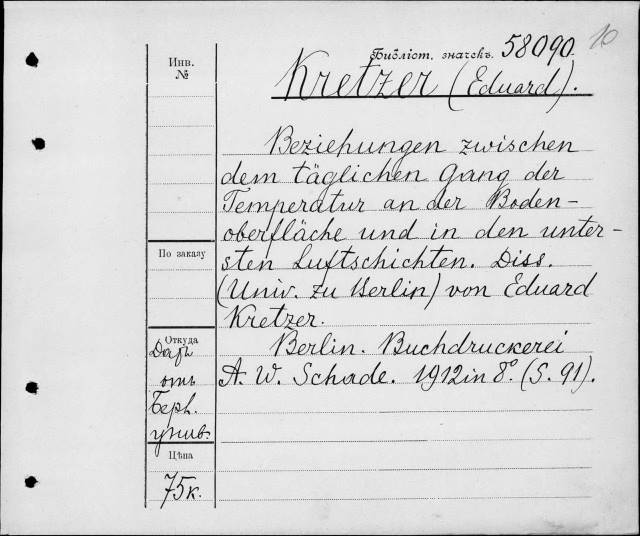 Библіот. значекъ. 58090. 10
Инв.
№
Kretzer (Eduard).
Beziehungen zwischen
dem täglichen Gang der
Temperatur an der Boden-
oberfläche und in den unter-
sten Luftschichten. Diss.
(Univ. zu Berlin) von Eduard
Kretzer.
Berlin. Buchdruckerei
A. W. Schade. 1912 in 8°. (S. 91).
По заказу
Откуда
Даръ
отъ
Берл.
унив.
Цѣна
75к.